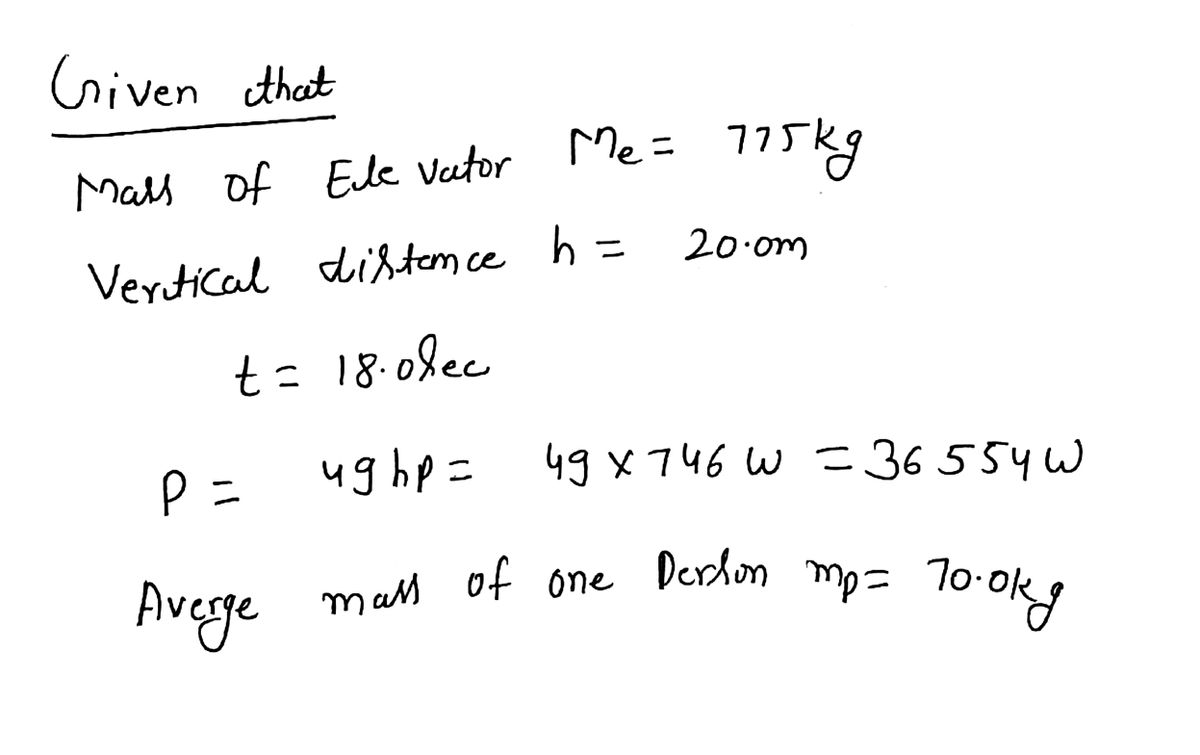 Given that
Mass of Elevator Me = 775kg
Vertical distance h = 20.0m
t = 18.0sec
P = 49hp = 49 x 746 W = 36554W
Averge mass of one Person mp = 70.0kg